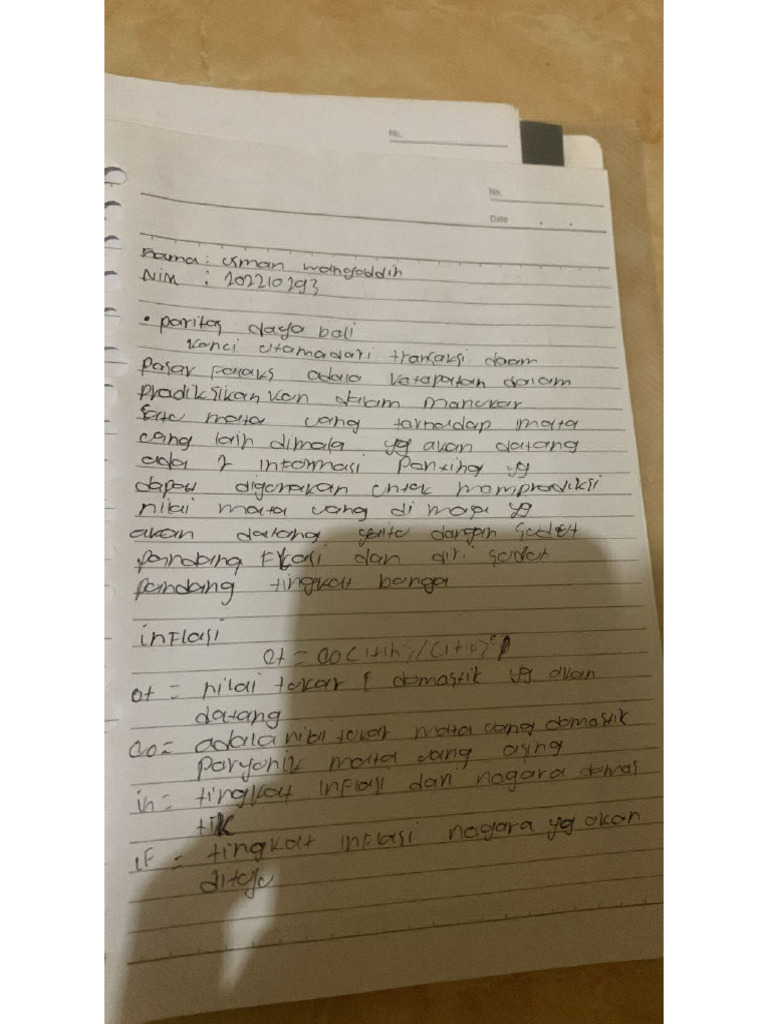 No.
No.
Date
Nama: usman wangaddin
Nim : 202210293
• paritas daya bali
kunci utama dari transaksi daam
pasar Foraks adala katapatan dalam
pradiksikan kan dalam manukar
satu mata uang tarhadap mata
uang lain dimasa yg akan datang
ada 2 informasi panting yg
dapat digunakan untuk mamprodiksi
nilai mata uang di masa yg
akan datang yaitu dangan sudut
pandang Flasi dan diri sudut
pandang tingkat bunga
inFlasi
et = eo (1+ih)/(1+iF)
et = nilai tukar F domastik yg akan
datang
eo = adala nilai tukar mata uang domastik
mata uang asing
ih = tingkat inFlasi dari nagara domas
tik
iF = tingkat inFlasi nagara yg akan
dituju